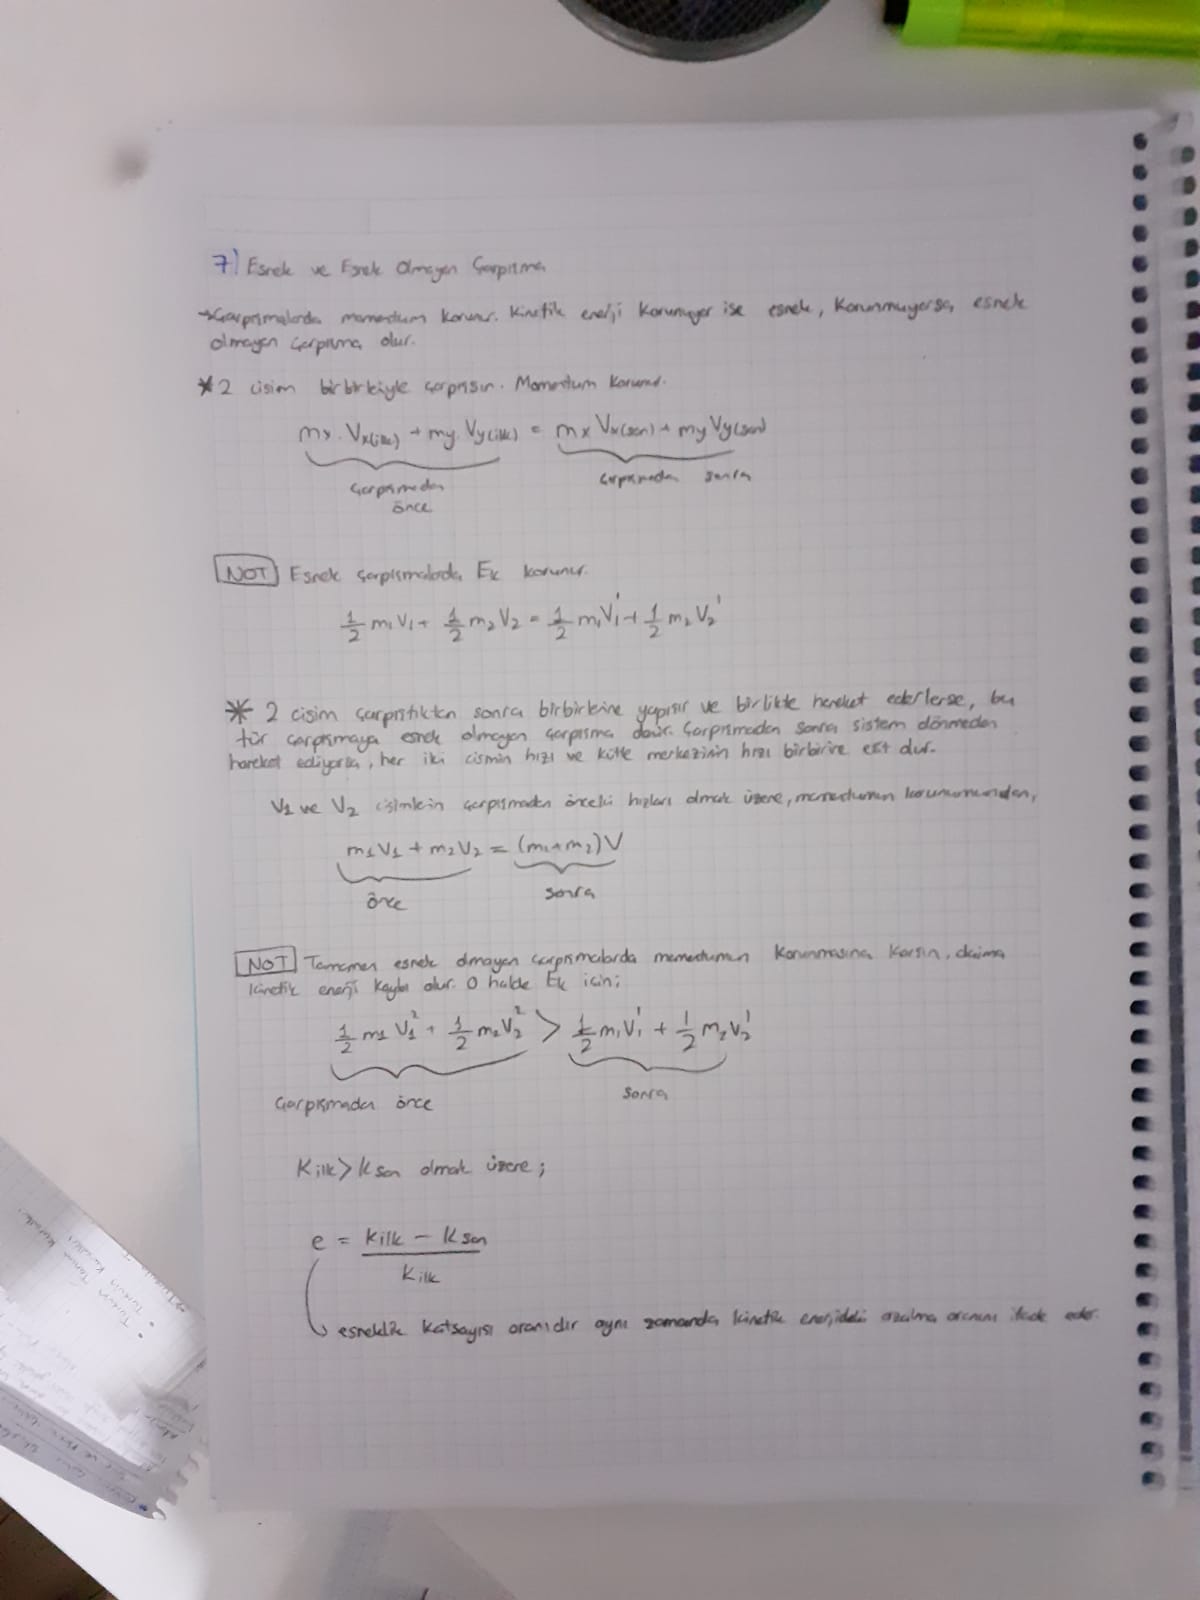 7) Esnek ve Esnek Olmayan Çarpışma
→ Çarpışmalarda momentum korunur. Kinetik enerji korunuyor ise esnek, korunmuyorsa esnek
olmayan çarpışma olur.
* 2 cisim birbirleiyle çarpışsın. Momentum korunur.
mx.Vx(ilk) + my.Vy(ilk) = mx Vx(son) + my Vy(son)
çarpışmadan önce
çarpışmadan sonra
NOT Esnek çarpışmalarda Ek korunur.
1/2 m₁V₁ + 1/2 m₂V₂ = 1/2 m₁V₁' + 1/2 m₂V₂'
* 2 cisim çarpıştıktan sonra birbirleine yapışır ve birlikte hareket ederlerse, bu
tür çarpışmaya esnek olmayan çarpışma denir. Çarpışmadan sonra sistem dönmeden
hareket ediyorsa, her iki cismin hızı ve kütle merkezinin hızı birbirine eşit dur.
V₁ ve V₂ cisimlein çarpışmadan önceki hızları olmak üzere, momentumun korunumundan,
m₁V₁ + m₂V₂ = (m₁+m₂)V
önce
sonra
NOT Tamamen esnek olmayan çarpışmalarda momentumun korunmasına karşın, daima
kinetik enerji kaybı olur. O halde Ek için;
1/2 m₁V₁² + 1/2 m₂V₂² > 1/2 m₁V₁' + 1/2 m₂V₂'
Çarpışmadan önce
sonra
Kilk > Kson olmak üzere;
e = Kilk - Kson / Kilk
esneklik katsayısı oranıdır aynı zamanda kinetik enerjideki azalma oranını ifade eder.